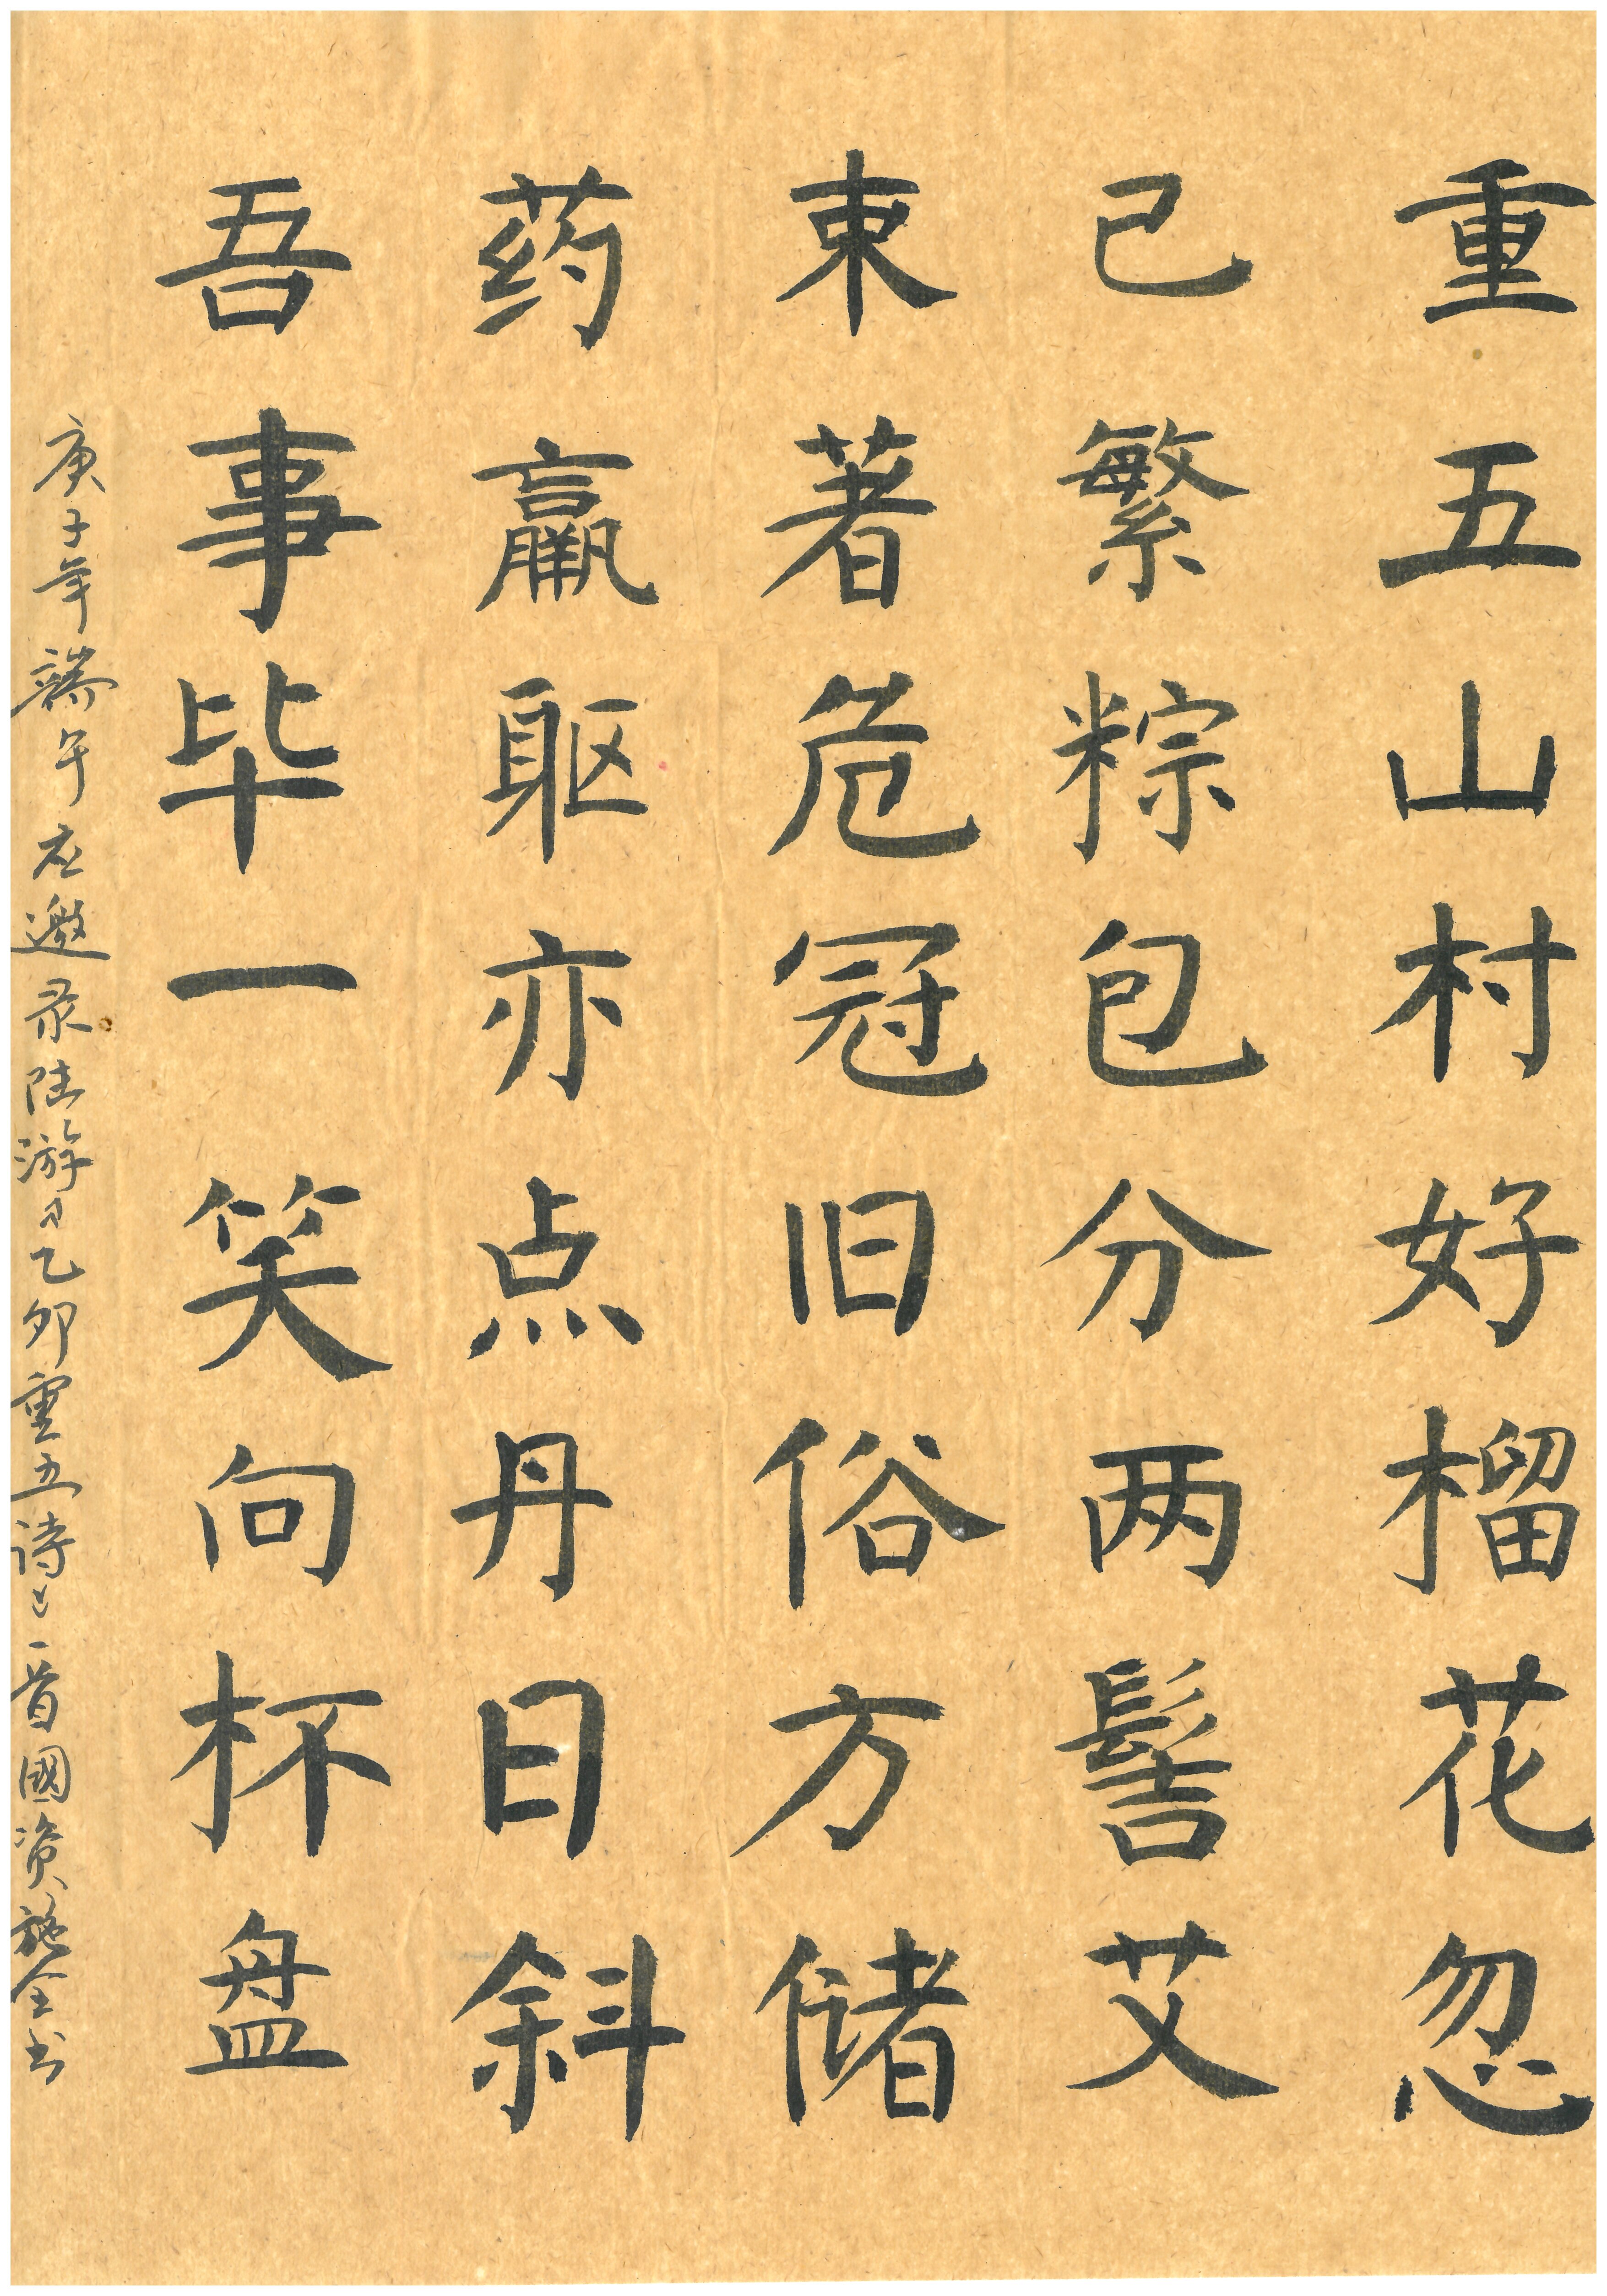 重五山村好榴花忽
已繁粽包分两髻艾
束著危冠旧俗方储
药羸躯亦点丹日斜
吾事毕一笑向杯盘
庚子年端午应邀录陆游《乙卯重五诗》一首國资施全书